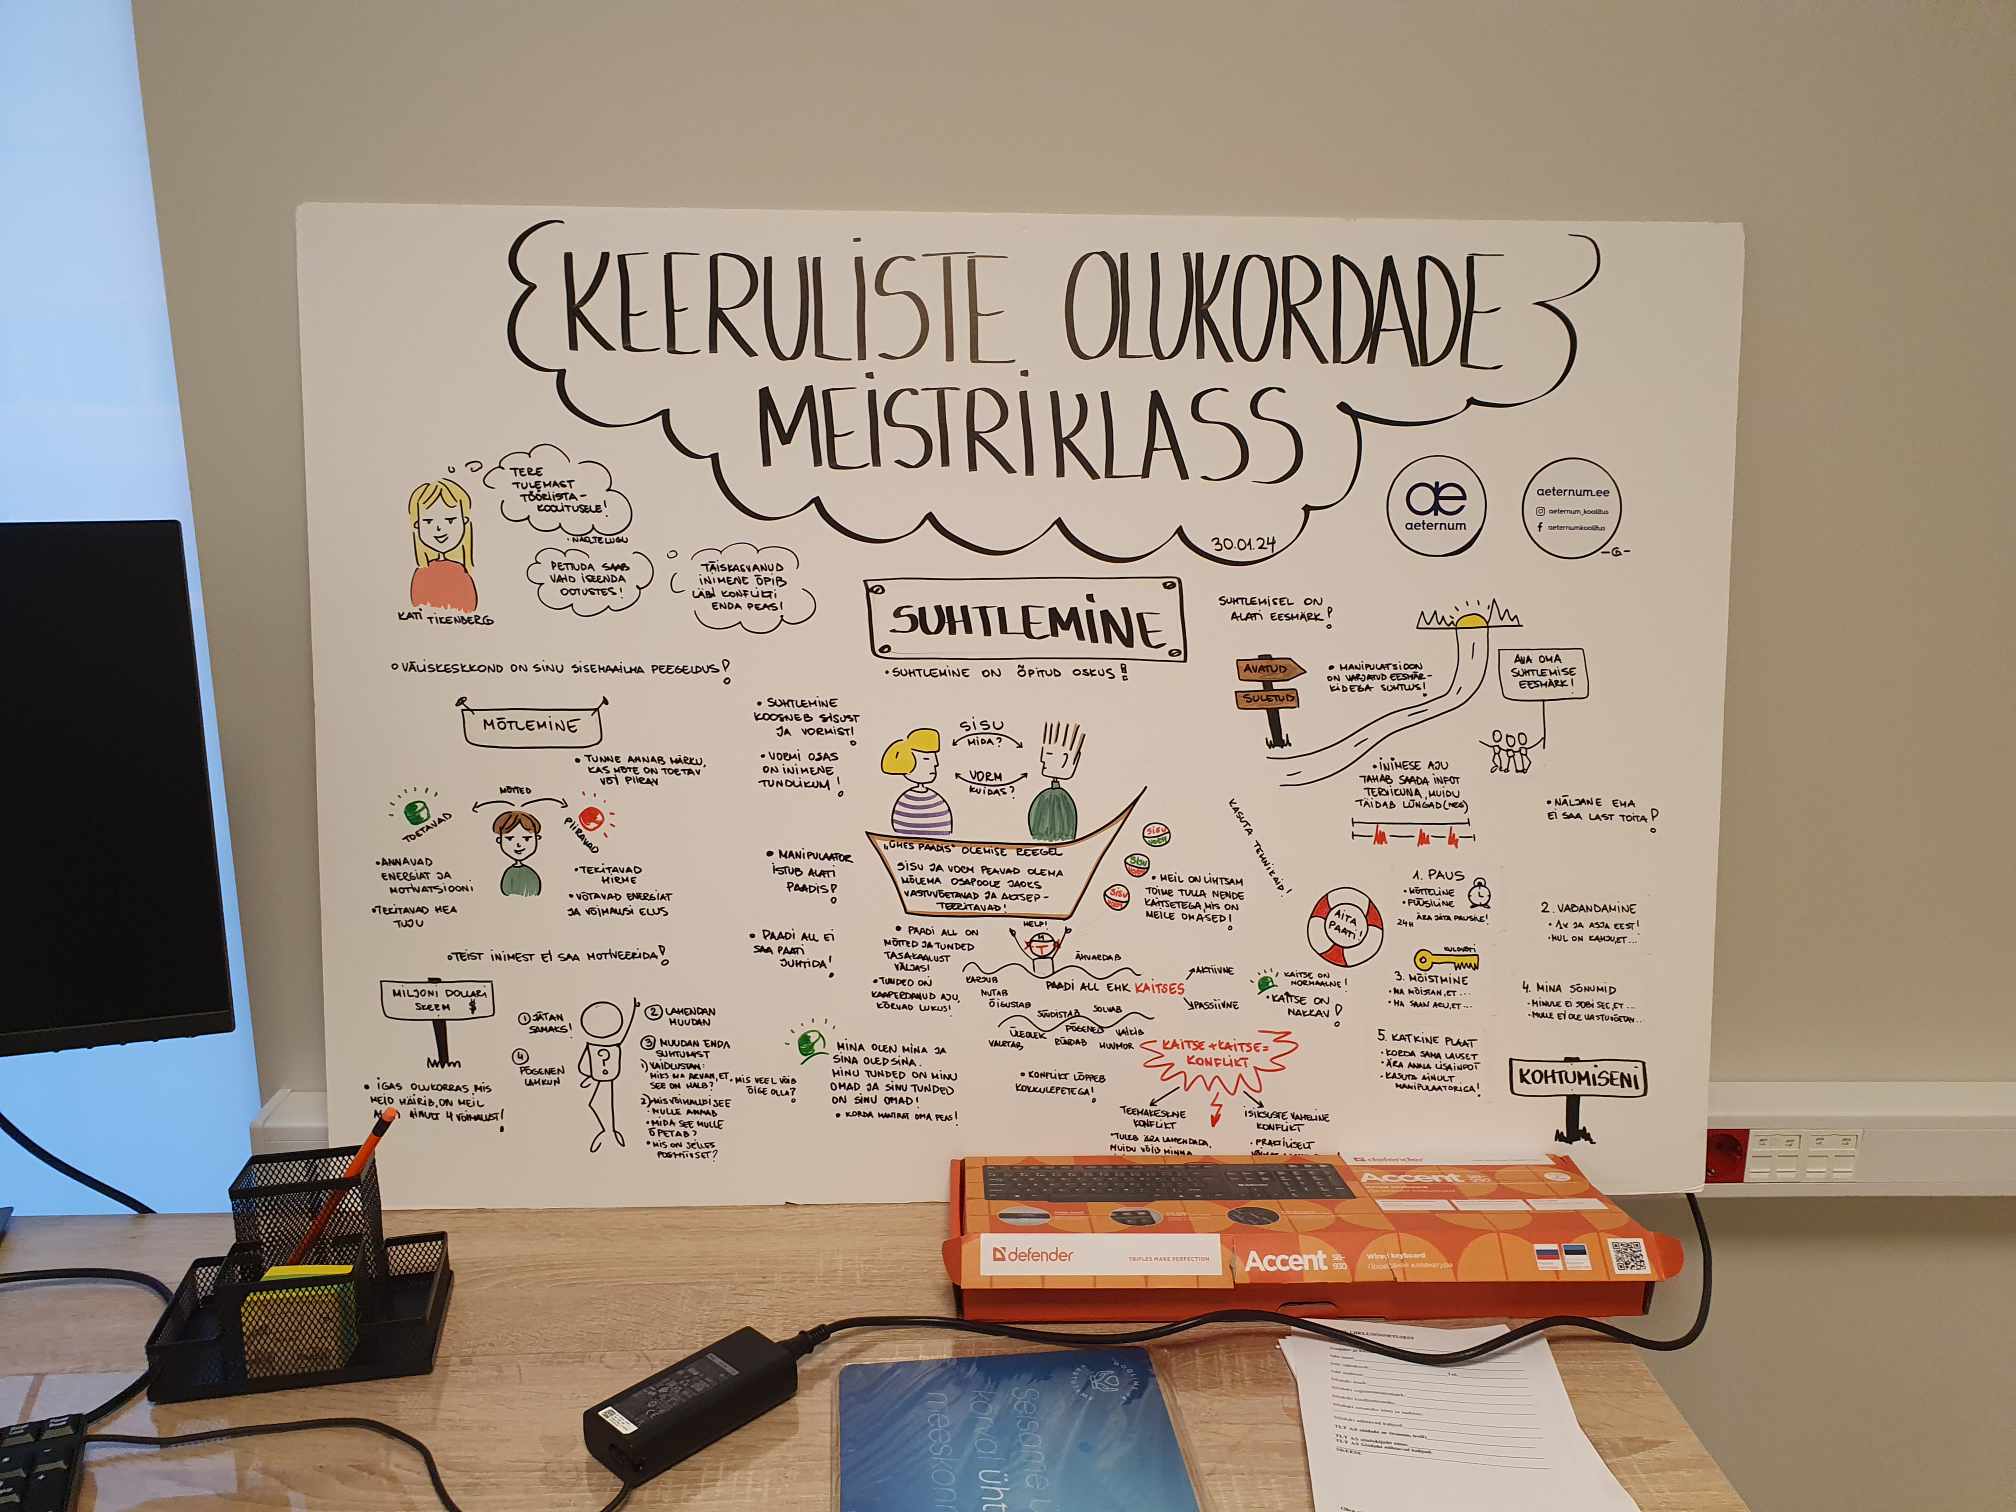 KEERULISTE OLUKORDADE
MEISTRIKLASS
30.01.24
TERE
TULEMAST
TÖÖRIISTA-
KOOLITUSELE!
PETTUDA SAAB
VAID ISEENDA
OOTUSTES!
TÄISKASVANUD
INIMENE ÕPIB
LÄBI KONFLIKTI
ENDA PEAS!
KATI TIKENBERG
ae
aeternum
aeternum.ee
aeternum_koolitus
aeternumkoolitus
-G-
VÄLISKESKKOND ON SINU SISEMAAILMA PEEGELDUS!
MÕTLEMINE
• TUNNE ANNAB MÄRKU,
KAS MÕTE ON TOETAV
VÕI PIIRAV
MÕTTED
TOETAVAD
PIIRAVAD
• ANNAVAD
ENERGIAT JA
MOTIVATSIOONI
• TEKITAVAD HEA
TUJU
• TEKITAVAD
HIRME
• VÕTAVAD ENERGIAT
JA VÕIMALUSI ELUS
• TEIST INIMEST EI SAA MOTIVEERIDA!
MILJONI DOLLARI
SKEEM $
• IGAS OLUKORRAS, MIS
MEID HÄIRIB, ON MEIL
AINULT 4 VÕIMALUST!
1 JÄTAN
SAMAKS!
2 LAHENDAN
MUUDAN
3 MUUDAN ENDA
SUHTUMIST
1) VAIDLUSTAN:
MIKS MA ARVAN, ET
SEE ON HALB?
• MIS VEEL VÕIB
ÕIGE OLLA?
2) MIS VÕIMALUSI SEE
MULLE ANNAB
• MIDA SEE MULLE
ÕPETAB?
• MIS ON SELLES
POSITIIVSET?
4 PÕGENEN
LAHKUN
?
SUHTLEMINE
• SUHTLEMINE ON ÕPITUD OSKUS!
• SUHTLEMINE
KOOSNEB SISUST
JA VORMIST!
• VORMI OSAS
ON INIMENE
TUNDLIKUM!
SISU
MIDA?
VORM
KUIDAS?
• MANIPULAATOR
ISTUB ALATI
PAADIS!
• PAADI ALL EI
SAA PAATI
JUHTIDA!
„ÜHES PAADIS" OLEMISE REEGEL
SISU JA VORM PEAVAD OLEMA
MÕLEMA OSAPOOLE JAOKS
VASTUVÕETAVAD JA AKTSEP-
TEERITAVAD!
SISU
VORM
SISU
VORM
SISU
• MEIL ON LIHTSAM
TOIME TULLA NENDE
KAITSETEGA, MIS ON
MEILE OMASED!
HELP!
M
T
• PAADI ALL ON
MÕTTED JA TUNDED
TASAKAALUST
VÄLJAS!
• TUNDED ON
KAAPERDANUD AJU,
KÕRVAD LUKUS!
ÄHVARDAB
KARJUB
NUTAB
ÕIGUSTAB
PAADI ALL EHK KAITSES
AKTIIVNE
PASSIIVNE
SÜÜDISTAB
SOLVAB
ÜLEOLEK
PÕGENEB
VAIKIB
VALETAB
RÜNDAB
HUUMOR
KAITSE ON
NORMAALNE!
• KAITSE ON
NAKKAV!
MINA OLEN MINA JA
SINA OLED SINA.
MINU TUNDED ON MINU
OMAD JA SINU TUNDED
ON SINU OMAD!
• KORDA MANTRAT OMA PEAS!
KAITSE + KAITSE =
KONFLIKT
• KONFLIKT LÕPPEB
KOKKULEPETEGA!
TEEMAKESKNE
KONFLIKT
• TULEB ÄRA LAHENDADA,
MUIDU VÕIB MINNA
ISIKSUSTE VAHELINE
KONFLIKT
• PRAKTILISELT
SUHTLEMISEL ON
ALATI EESMÄRK!
AVATUD
SULETUD
• MANIPULATSIOON
ON VARJATUD EESMÄR-
KIDEGA SUHTLUS!
AVA OMA
SUHTLEMISE
EESMÄRK!
• INIMESE AJU
TAHAB SAADA INFOT
TERVIKUNA, MUIDU
TÄIDAB LÜNGAD (NEG)
• NÄLJANE EMA
EI SAA LAST TOITA!
KASUTA TEHNIKAID!
AITA
PAATI!
1. PAUS
• MÕTTELINE
• FÜÜSILINE
24H ÄRA JÄTA PAUSILE!
2. VABANDAMINE
• 1X JA ASJA EEST!
• MUL ON KAHJU, ET...
KULDVÕTI
3. MÕISTMINE
• MA MÕISTAN, ET...
• MA SAAN ARU, ET...
4. MINA SÕNUMID
• MINULE EI SOBI SEE, ET...
• MULLE EI OLE VASTUVÕETAV...
5. KATKINE PLAAT
• KORDA SAMA LAUSET
• ÄRA ANNA LISAINFOT
• KASUTA AINULT
MANIPULAATORIGA!
KOHTUMISENI
defender
Accent
defender
TRIPLES MAKE PERFECTION
Accent SB-930
Wired keyboard
Проводная клавиатура
seisame ü
korval üht
meeskonn